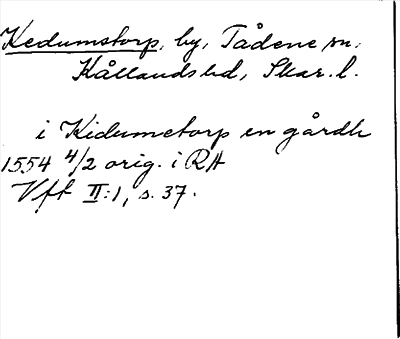 Kedumstorp, by, Tådene sn,
Kållands hd, Skar. l.
i Kidumetorp en gårdh
1554 4/2 orig. i RA
Vft II:1, s. 37.